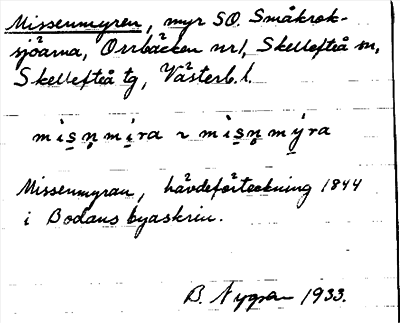 Missenmyren, myr SO. Småkrok-
sjöarna, Orrbäcken nr1, Skellefteå sn,
Skellefteå tg, Västerb. l.
misn̥mira ~ misn̥mýra
Missenmyran, hävdeförteckning 1844
i Bodans byaskrin.
B. Nygren 1933.